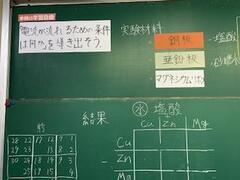 本時の学習目標
電流が流れるための条件
は何かを導き出そう。
実験材料
銅板
亜鉛板
マグネシウムリボン
・塩酸
・砂糖水
結果
水 塩酸
Cu Zn Mg
Cu
Zn
Mg
28 22 17 12 7 1
29 23 13 8 2
30 24 18 14 9 3
25 19 15 4